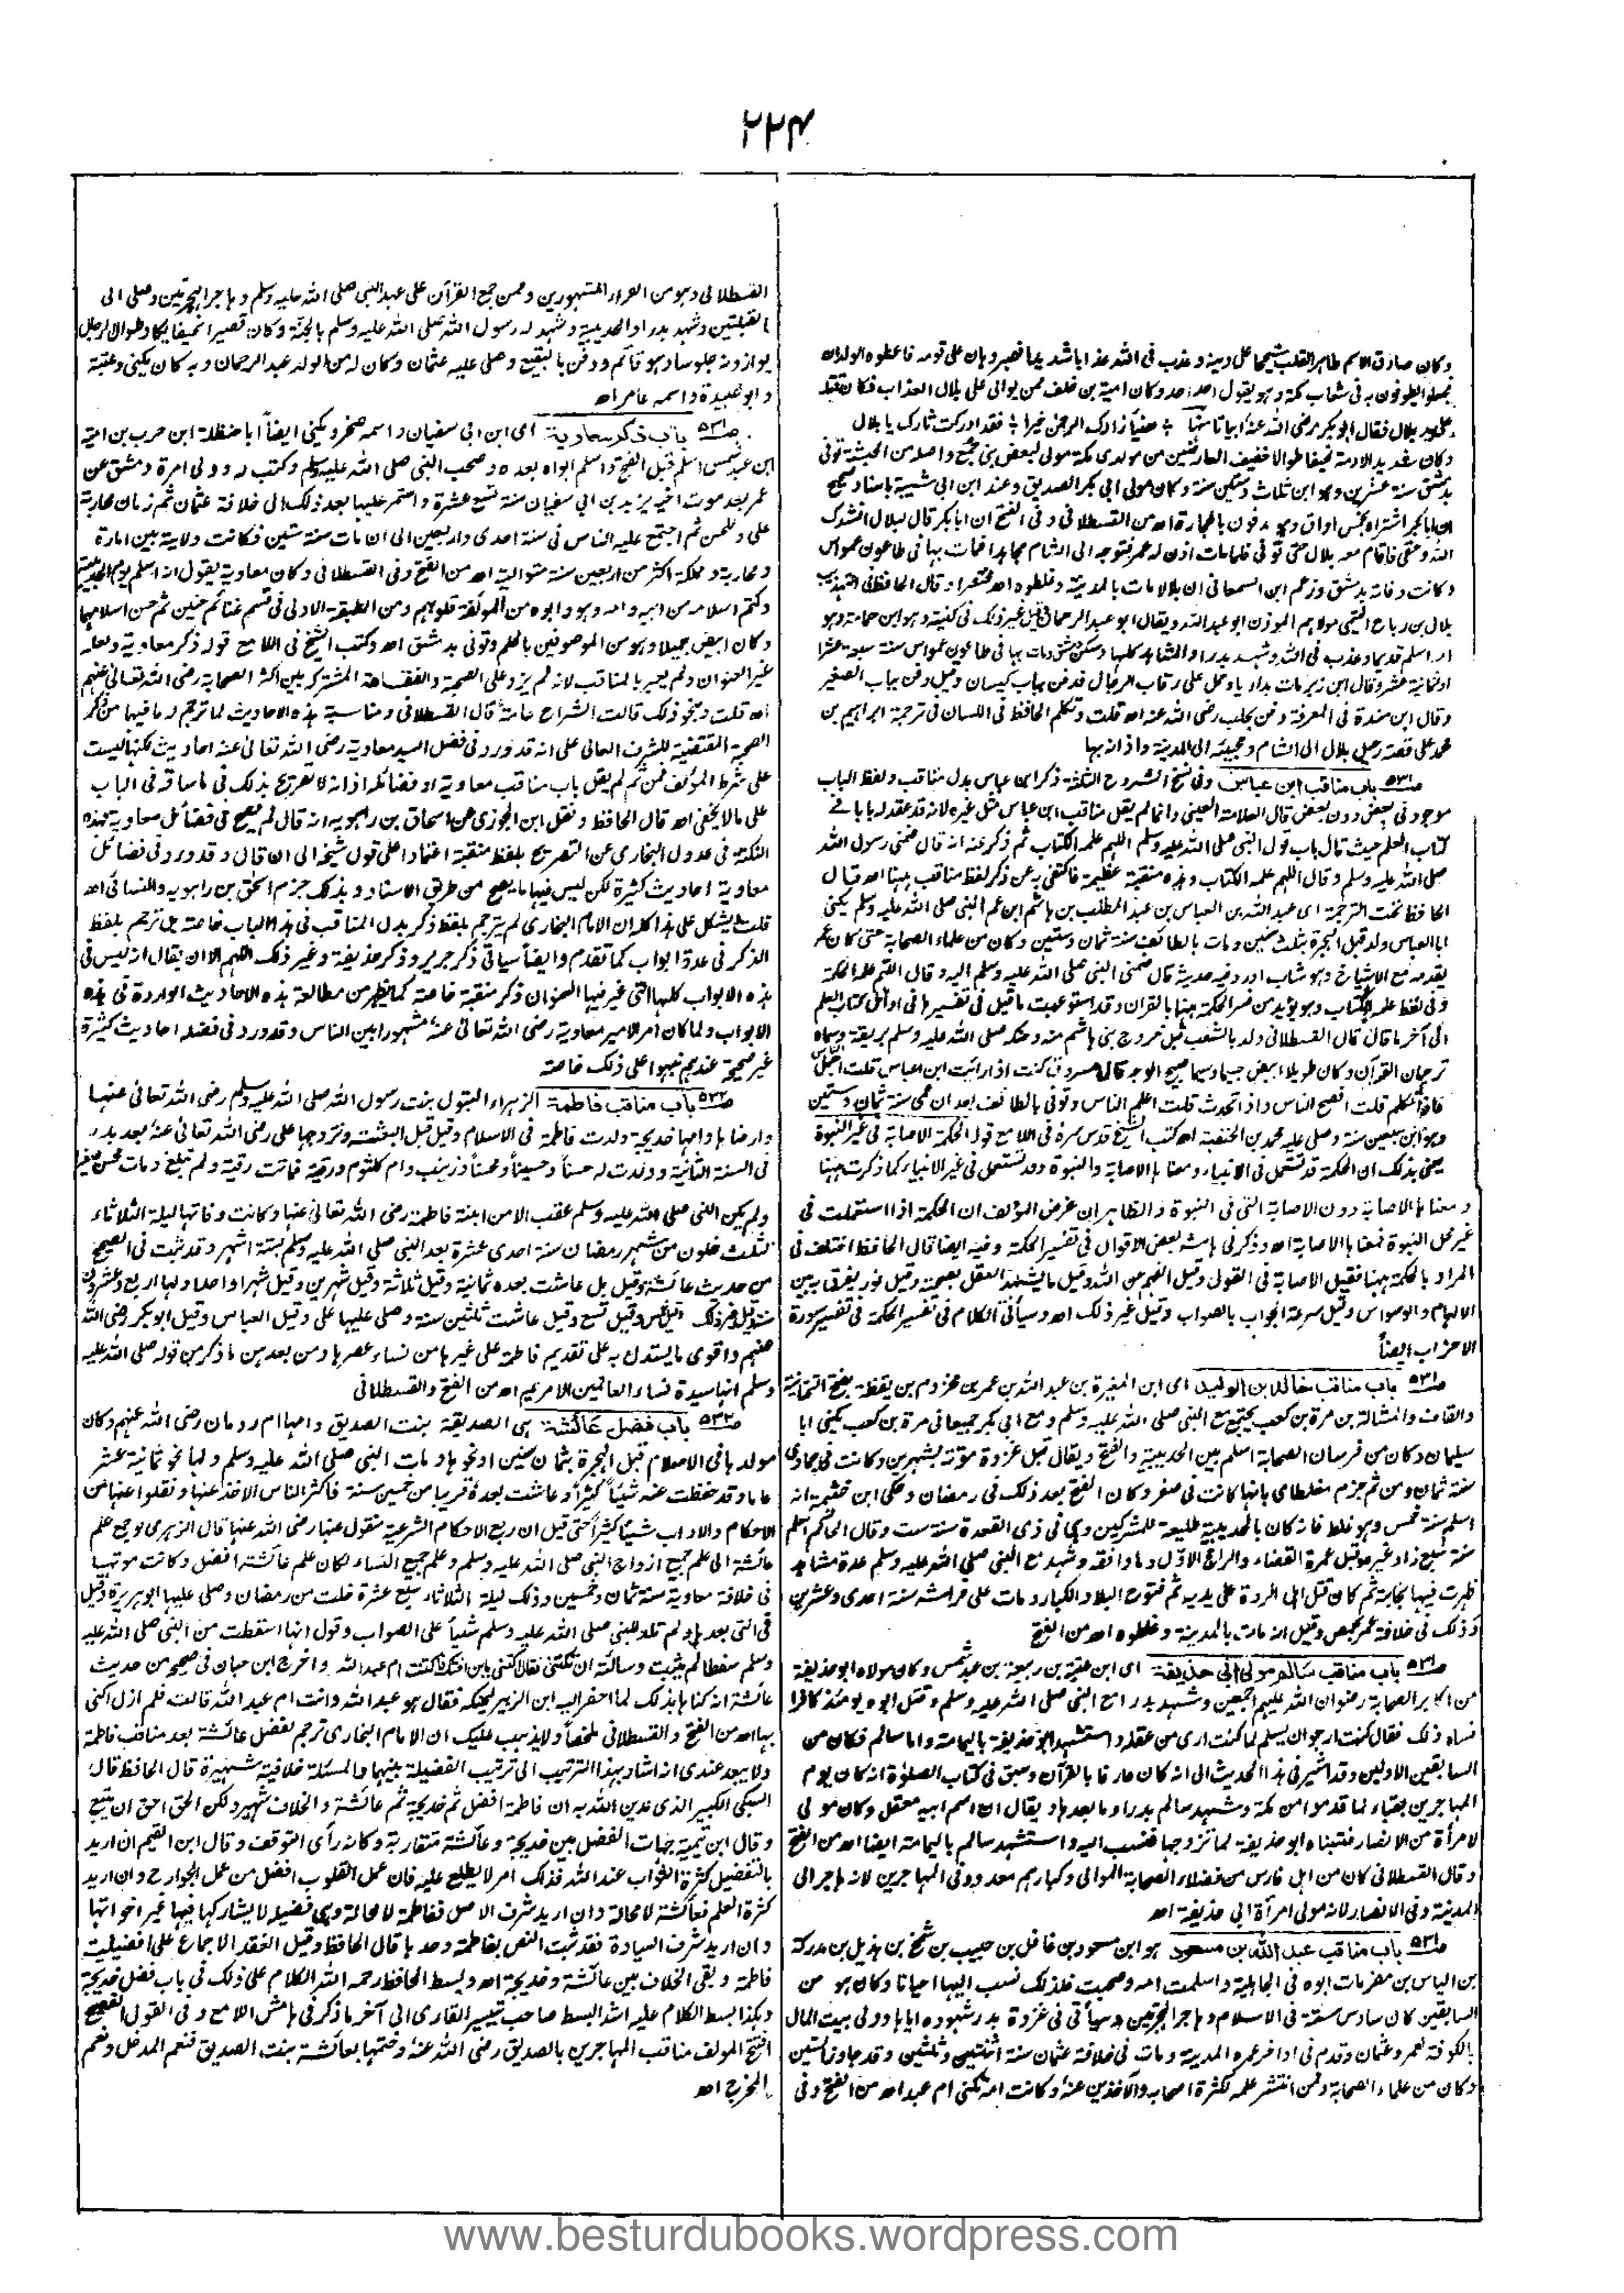 ۲۲۴
وكان صادق الاسلام طاهر القلب شحيحا على دينه وعذب فى الله عذابا شديدا فصبر وهان على قومه فاعطوه الولدان
فجعلوا يطوفون به فى شعاب مكة وهو يقول احد احد وكان امية بن خلف ممن يوالى على بلال العذاب فكان قتله
على يد بلال فقال ابو بكر رضى الله عنه ابياتا منها هنيئا زادك الرحمن خيرا فقد ادركت ثارك يا بلال
وكان شديد الادمة نحيفا طوالا خفيف العارضين من مولدى مكة مولى لبعض بنى جمح واصله من الحبشة توفى
بدمشق سنة عشرين وهو ابن ثلاث وستين سنة وكان مولى ابى بكر الصديق وعند ابن ابى شيبة باسناد صحيح
ان ابا بكر اشتراه بخمس اواق وهو مدفون بالحجارة اه من القسطلانى وفى الفتح ان ابا بكر قال لبلال انشدك
الله وحقى فاقام معه بلال حتى توفى فلما مات اذن له عمر فتوجه الى الشام مجاهدا فمات بها فى طاعون عمواس
وكانت وفاته بدمشق وزعم ابن السمعانى ان بلالا مات بالمدينة وغلطوه اه مختصرا وقال الحافظ فى التهذيب
بلال بن رباح التيمى مولاهم المؤذن ابو عبد الله ويقال ابو عبد الرحمن وقيل غير ذلك فى كنيته وهو ابن حمامة وهى
امه اسلم قديما وعذب فى الله وشهد بدرا والمشاهد كلها وسكن دمشق ومات بها فى طاعون عمواس سنة سبع عشرة
او ثمانية عشر وقال ابن زبر مات بداريا وحمل على رقاب الرجال فدفن بباب كيسان وقيل دفن بباب الصغير
وقال ابن مندة فى المعرفة دفن بحلب رضى الله عنه اه قلت وتكلم الحافظ فى اللسان فى ترجمة ابراهيم بن
محمد على قصة رحيل بلال الى الشام ومجيئه الى المدينة واذانه بها
ص۵۳۱ باب مناقب ابن عباس وفى نسخ الشروح الثلثة ذكر ابن عباس بدل مناقب ولفظ الباب
موجود فى بعض دون بعض قال العلامة العينى وانما لم يقل مناقب ابن عباس مثل غيره لانه قد عقد له بابا فى
كتاب العلم حيث قال باب قول النبى صلى الله عليه وسلم اللهم علمه الكتاب ثم ذكر عنه انه قال ضمنى رسول الله
صلى الله عليه وسلم وقال اللهم علمه الكتاب وهذه منقبة عظيمة فاكتفى به عن ذكر لفظ مناقب ههنا اه قال
الحافظ تحت الترجمة اى عبد الله بن العباس بن عبد المطلب بن هاشم ابن عم النبى صلى الله عليه وسلم يكنى
ابا العباس ولد قبل الهجرة بثلث سنين ومات بالطائف سنة ثمان وستين وكان من علماء الصحابة حتى كان عمر
يقدمه مع الاشياخ وهو شاب اورد فيه حديثه قال ضمنى النبى صلى الله عليه وسلم اليه وقال اللهم علمه الحكمة
وفى لفظ علمه الكتاب وهو يؤيد من فسر الحكمة ههنا بالقرآن وقد استوعبت ما قيل فى تفسيرها فى اوائل كتاب العلم
الى آخر ما قال قال القسطلانى ولد بالشعب قبل خروج بنى هاشم منه وحنكه صلى الله عليه وسلم بريقه وسماه
ترجمان القرآن وكان طويلا ابيض جسيما وسيما صبيح الوجه قال مسروق كنت اذا رأيت ابن عباس قلت اجمل الناس
فاذا تكلم قلت افصح الناس واذا تحدث قلت اعلم الناس وتوفى بالطائف بعد ان عمى سنة ثمان وستين
وهو ابن سبعين سنة وصلى عليه محمد بن الحنفية اه كتب الشيخ قدس سره فى اللامع قوله الحكمة الاصابة فى غير النبوة
يعنى بذلك ان الحكمة قد تستعمل فى الانبياء ومعناها الاصابة والنبوة وقد تستعمل فى غير الانبياء كما ذكرت ههنا
ومعناها الاصابة دون الاصابة التى فى النبوة والظاهر ان غرض المؤلف ان الحكمة اذا استعملت فى
غير محل النبوة فمعناها الاصابة اه وذكر فى هامشه بعض الاقوال فى تفسير الحكمة وفيه ايضا قال الحافظ اختلف فى
المراد بالحكمة ههنا فقيل الاصابة فى القول وقيل الفهم عن الله وقيل ما يشهد العقل بصحته وقيل نور يفرق به بين
الالهام والوسواس وقيل سرعة الجواب بالصواب وقيل غير ذلك اه وسيأتى الكلام فى تفسير الحكمة فى تفسير سورة
الاحزاب ايضاً
ص۵۳۱ باب مناقب خالد بن الوليد اى ابن المغيرة بن عبد الله بن عمر بن مخزوم بن يقظة بفتح التحتانية
والقاف والمشالة بن مرة بن كعب يجتمع مع النبى صلى الله عليه وسلم ومع ابى بكر جميعا فى مرة بن كعب يكنى ابا
سليمان وكان من فرسان الصحابة اسلم بين الحديبية والفتح ويقال قبل غزوة مؤتة بشهرين وكانت فى جمادى
سنة ثمان ومن ثم جزم مغلطاى بانها كانت فى صفر وكان الفتح بعد ذلك فى رمضان وحكى ابن خيثمة انه
اسلم سنة خمس وهو غلط فانه كان بالحديبية طليعة للمشركين وهى فى ذى القعدة سنة ست وقال الحاكم اسلم
سنة سبع زاد غيره وقبل عمرة القضاء والراجح الاول وما وافقه وشهد مع النبى صلى الله عليه وسلم عدة مشاهد
ظهرت فيها نجابته ثم كان قتل اهل الردة على يديه ثم فتوح البلاد الكبار ومات على فراشه سنة احدى وعشرين
وذلك فى خلافة عمر بحمص وقيل انه مات بالمدينة وغلطوه اه من الفتح
ص۵۳۱ باب مناقب سالم مولى ابى حذيفة اى ابن عتبة بن ربيعة بن عبد شمس وكان مولاه ابو حذيفة
من اكابر الصحابة رضوان الله عليهم اجمعين وشهد بدرا مع النبى صلى الله عليه وسلم وقتل ابوه يومئذ كافرا
فساءه ذلك فقال كنت ارجو ان يسلم لما كنت ارى من عقله واستشهد ابو حذيفة باليمامة واما سالم فكان من
السابقين الاولين وقد اشير فى هذا الحديث الى انه كان عارفا بالقرآن وسبق فى كتاب الصلوة انه كان يؤم
المهاجرين بقباء لما قدموا من مكة وشهد سالم بدرا وما بعدها ويقال ان اسم ابيه معقل وكان مولى
لامرأة من الانصار فتبناه ابو حذيفة لما تزوجها فنسب اليه واستشهد سالم باليمامة ايضا اه من الفتح
وقال القسطلانى كان من اهل فارس من فضلاء الصحابة الموالى وكبارهم معدود فى المهاجرين لانه هاجر الى
المدينة وفى الانصار لانه مولى امرأة ابى حذيفة اه
ص۵۳۱ باب مناقب عبد الله بن مسعود هو ابن مسعود بن غافل بن حبيب بن شمخ بن هذيل بن مدركة
بن الياس بن مضر مات ابوه فى الجاهلية واسلمت امه وصحبت فلذلك نسب اليها احيانا وكان هو من
السابقين كان سادس ستة فى الاسلام وهاجر الهجرتين وسيأتى فى غزوة بدر شهوده اياها وولى بيت المال
بالكوفة لعمر وعثمان وقدم فى اواخر عمره المدينة ومات فى خلافة عثمان سنة اثنتين وثلثين وقد جاوز الستين
وكان من علماء الصحابة وممن انتشر علمه لكثرة اصحابه والآخذين عنه وكانت امه تكنى ام عبد اه من الفتح وفى
القسطلانى وهو من القراء المشهورين وممن جمع القرآن على عهد النبى صلى الله عليه وسلم وهاجر الهجرتين وصلى الى
القبلتين وشهد بدرا والحديبية وشهد له رسول الله صلى الله عليه وسلم بالجنة وكان قصيرا نحيفا يكاد طوال الرجال
يوازونه جلوسا وهو قائم ودفن بالبقيع وصلى عليه عثمان وكان له من الولد عبد الرحمان وبه كان يكنى وعتبة
وابو عبيدة واسمه عامر اه
ص۵۳۱ باب ذكر معاوية اى ابن ابى سفيان واسمه صخر ويكنى ايضاً ابا حنظلة ابن حرب بن امية
ابن عبد شمس اسلم قبل الفتح واسلم ابواه بعده وصحب النبى صلى الله عليه وسلم وكتب له وولى امرة دمشق عن
عمر بعد موت اخيه يزيد بن ابى سفيان سنة تسع عشرة واستمر عليها بعد ذلك الى خلافة عثمان ثم زمان محاربته
على وللحسن ثم اجتمع عليه الناس فى سنة احدى واربعين الى ان مات سنة ستين فكانت ولايته بين امارة
ومحاربة ومملكة اكثر من اربعين سنة متوالية اه من الفتح وفى القسطلانى وكان معاوية يقول انه اسلم يوم الحديبية
وكتم اسلامه من ابيه وامه وهو وابوه من المؤلفة قلوبهم ومن الطبقة الاولى فى قسم غنائم حنين ثم حسن اسلامهما
وكان ابيض جميلا وهو من الموصوفين بالحلم وتوفى بدمشق اه وكتب الشيخ فى اللامع قوله ذكر معاوية ولعله
غير العنوان ولم يعبر بالمناقب لانه لم يزد على الصحبة والفقاهة المشتركة بين اكثر الصحابة رضى الله تعالى عنهم
اه قلت وبنحو ذلك قالت الشراح عامة قال القسطلانى ومناسبة هذه الاحاديث لما ترجم له ما فيها من ذكر
الصحبة المقتضية للشرف العالى على انه قد ورد فى فضل السيد معاوية رضى الله تعالى عنه احاديث لكنها ليست
على شرط المؤلف فمن ثم لم يقل باب مناقب معاوية او فضائله اذ انه لا تصريح بذلك فى ما ساقه فى الباب
على ما لا يخفى اه قال الحافظ ونقل ابن الجوزى عن اسحاق بن راهويه انه قال لم يصح فى فضائل معاوية فهذه
النكتة فى عدول البخارى عن التصريح بلفظ منقبة اعتمادا على قول شيخه الى ان قال وقد ورد فى فضائل
معاوية احاديث كثيرة لكن ليس فيها ما يصح من طريق الاسناد وبذلك جزم اسحق بن راهويه والنسائى اه
قلت يشكل على هذا كله ان الامام البخارى لم يترجم بلفظ ذكر بدل المناقب فى هذا الباب خاصة بل ترجم بلفظ
الذكر فى عدة ابواب كما تقدم وايضاً سيأتى ذكر جرير وذكر حذيفة وغير ذلك اللهم الا ان يقال انه ليس فى
هذه الابواب كلها التى غير فيها العنوان ذكر منقبة خاصة كما يظهر من مطالعة هذه الاحاديث الواردة فى هذه
الابواب ولما كان امر الامير معاوية رضى الله تعالى عنه مشهورا بين الناس وقد ورد فى فضله احاديث كثيرة
غير صحيحة عندهم نبهوا على ذلك خاصة
ص۵۳۲ باب مناقب فاطمة الزهراء البتول بنت رسول الله صلى الله عليه وسلم رضى الله تعالى عنها
وارضاها وامها خديجة ولدت فاطمة فى الاسلام وقيل قبل البعثة وتزوجها على رضى الله تعالى عنه بعد بدر
فى السنة الثانية وولدت له حسناً وحسيناً ومحسناً وزينب وام كلثوم ورقية فماتت رقية ولم تبلغ ومات محسن صغيرا
ولم يكن للنبى صلى الله عليه وسلم عقب الا من ابنته فاطمة رضى الله تعالى عنها وكانت وفاتها ليلة الثلاثاء
لثلث خلون من شهر رمضان سنة احدى عشرة بعد النبى صلى الله عليه وسلم بستة اشهر وقد ثبت فى الصحيح
من حديث عائشة وقيل بل عاشت بعده ثمانية وقيل ثلاثة وقيل شهرين وقيل شهرا واحدا ولها اربع وعشرون
سنة وقيل غير ذلك وقيل خمس وقيل تسع وقيل عاشت ثلثين سنة وصلى عليها على وقيل العباس وقيل ابو بكر رضى الله
عنهم واقوى ما يستدل به على تقديم فاطمة على غيرها من نساء عصرها ومن بعدهن ما ذكر من قوله صلى الله عليه
وسلم انها سيدة نساء العالمين الا مريم اه من الفتح والقسطلانى
ص۵۳۲ باب فضل عائشة هى الصديقة بنت الصديق وامها ام رومان رضى الله عنهم وكان
مولدها فى الاسلام قبل الهجرة بثمان سنين او نحوها ومات النبى صلى الله عليه وسلم ولها نحو ثمانية عشر
عاما وقد حفظت عنه شيئاً كثيراً وعاشت بعده قريبا من خمسين سنة فاكثر الناس الاخذ عنها ونقلوا عنها من
الاحكام والاداب شيئا كثيراً حتى قيل ان ربع الاحكام الشرعية منقول عنها رضى الله عنها قال الزهرى لو جمع علم
عائشة الى علم جميع ازواج النبى صلى الله عليه وسلم وعلم جميع النساء لكان علم عائشة افضل وكانت موتها
فى خلافة معاوية سنة ثمان وخمسين وذلك ليلة الثلاثاء لسبع عشرة خلت من رمضان وصلى عليها ابو هريرة وقيل
فى التى بعدها ولم تلد للنبى صلى الله عليه وسلم شيئاً على الصواب وقول انها اسقطت من النبى صلى الله عليه
وسلم سقطا لم يثبت وسألته ان تكتنى فقال اكتنى بابن اختك فاكتنت ام عبد الله واخرج ابن حبان فى صحيحه من حديث
عائشة انه كناها بذلك لما احضر اليه ابن الزبير ليحنكه فقال هو عبد الله وانت ام عبد الله قالت فلم ازل اكنى
بها اه من الفتح والقسطلانى ملخصاً ولا يذهب عليك ان الامام البخارى ترجم بفضل عائشة بعد مناقب فاطمة
ولا يبعد عندى انه اشار بهذا الترتيب الى ترتيب الفضيلة بينهما والمسئلة خلافية شهيرة قال الحافظ قال
السبكى الكبير الذى ندين الله به ان فاطمة افضل ثم خديجة ثم عائشة والخلاف شهير ولكن الحق احق ان يتبع
وقال ابن تيمية جهات الفضل بين خديجة وعائشة متقاربة وكانه رأى التوقف وقال ابن القيم ان اريد
بالتفضيل كثرة الثواب عند الله فذلك امر لا يطلع عليه فان عمل القلوب افضل من عمل الجوارح وان اريد
كثرة العلم فعائشة لا محالة وان اريد شرف الاصل ففاطمة لا محالة وهى فضيلة لا يشاركها فيها غير اخواتها
وان اريد شرف السيادة فقد ثبت النص لفاطمة وحدها قال الحافظ وقيل انعقد الاجماع على افضيلت
فاطمة وبقى الخلاف بين عائشة وخديجة اه وبسط الحافظ رحمه الله الكلام على ذلك فى باب فضل خديجة
وهكذا بسط الكلام عليه اشد البسط صاحب تيسير القارى الى آخر ما ذكر فى هامش اللامع وفى القول الفصيح
افتتح المؤلف مناقب المهاجرين بالصديق رضى الله عنه وختمها بعائشة بنت الصديق فنعم المدخل ونعم
المخرج اه
www.besturdubooks.wordpress.com